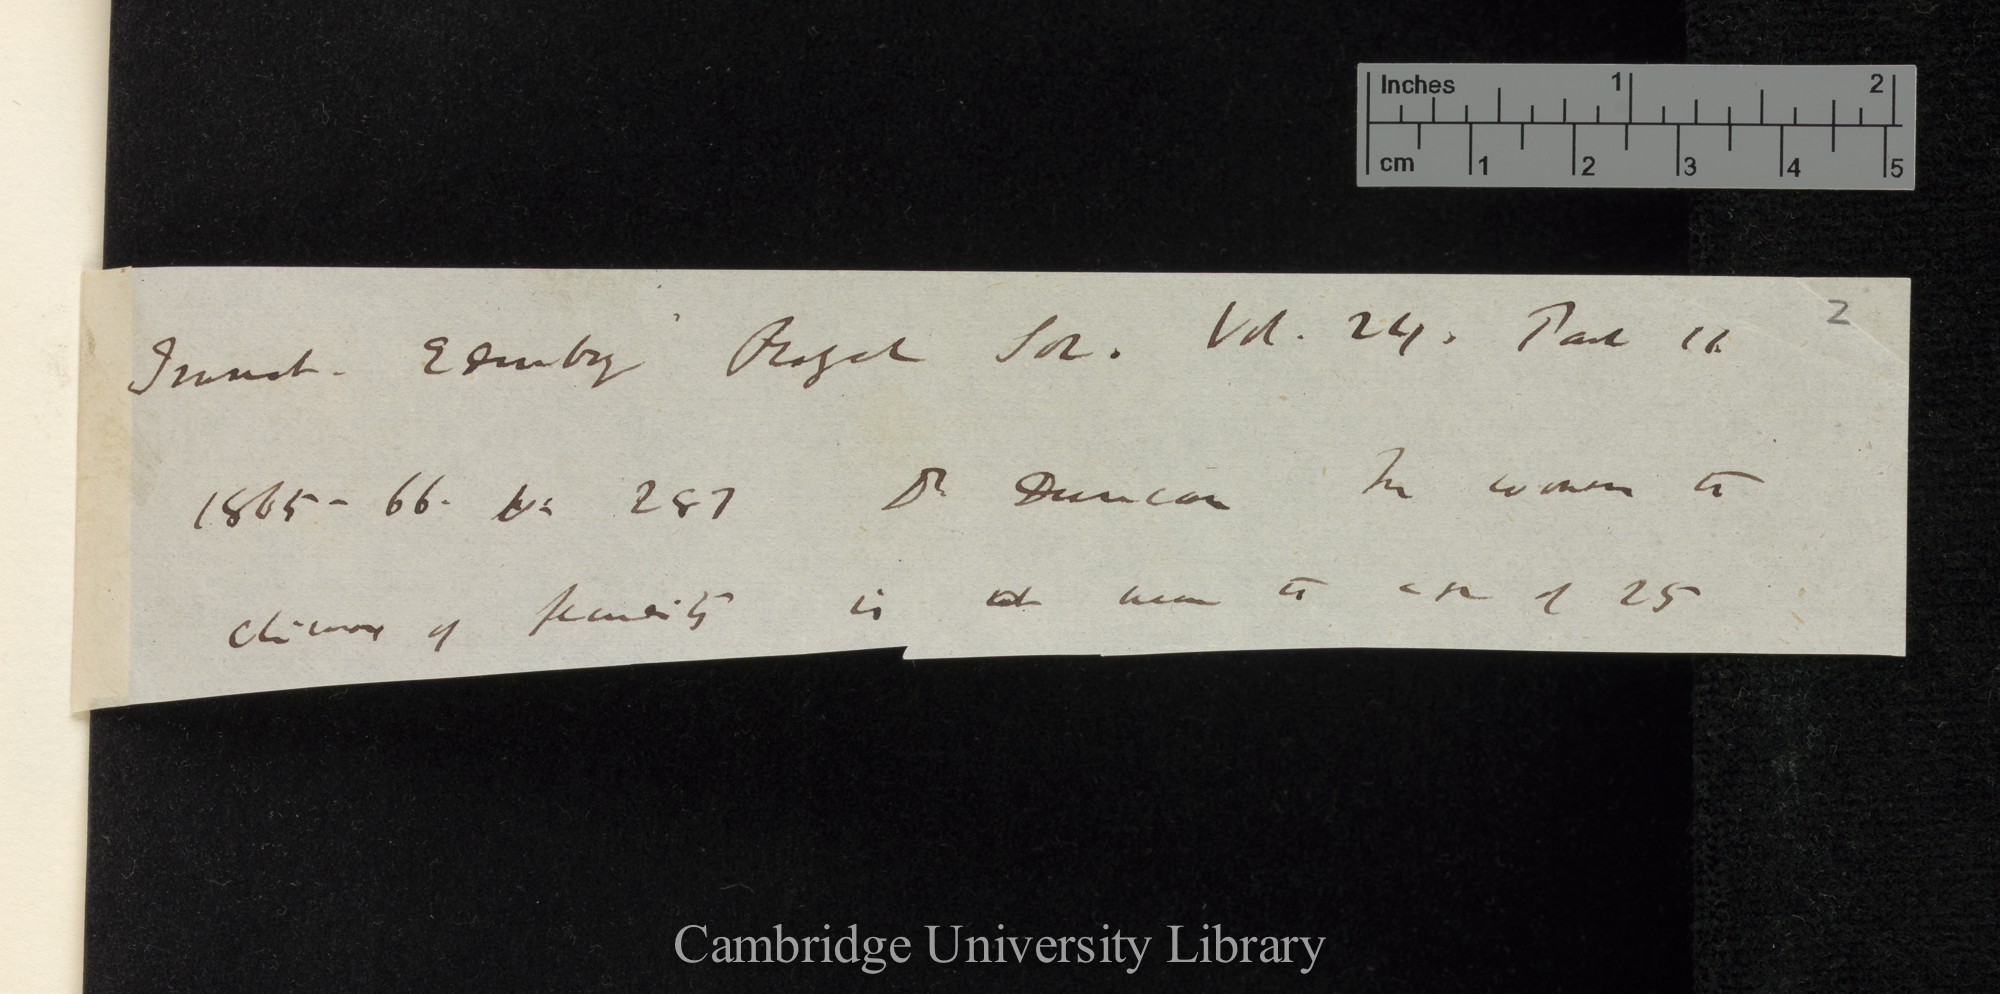 Inches 1 2
cm 1 2 3 4 5
2
Transact. Edinburg Royal Soc. Vol. 24. Part II.
1865-66. p. 287 Dr Duncan In women the
climax of fecundity is at near the age of 25
Cambridge University Library